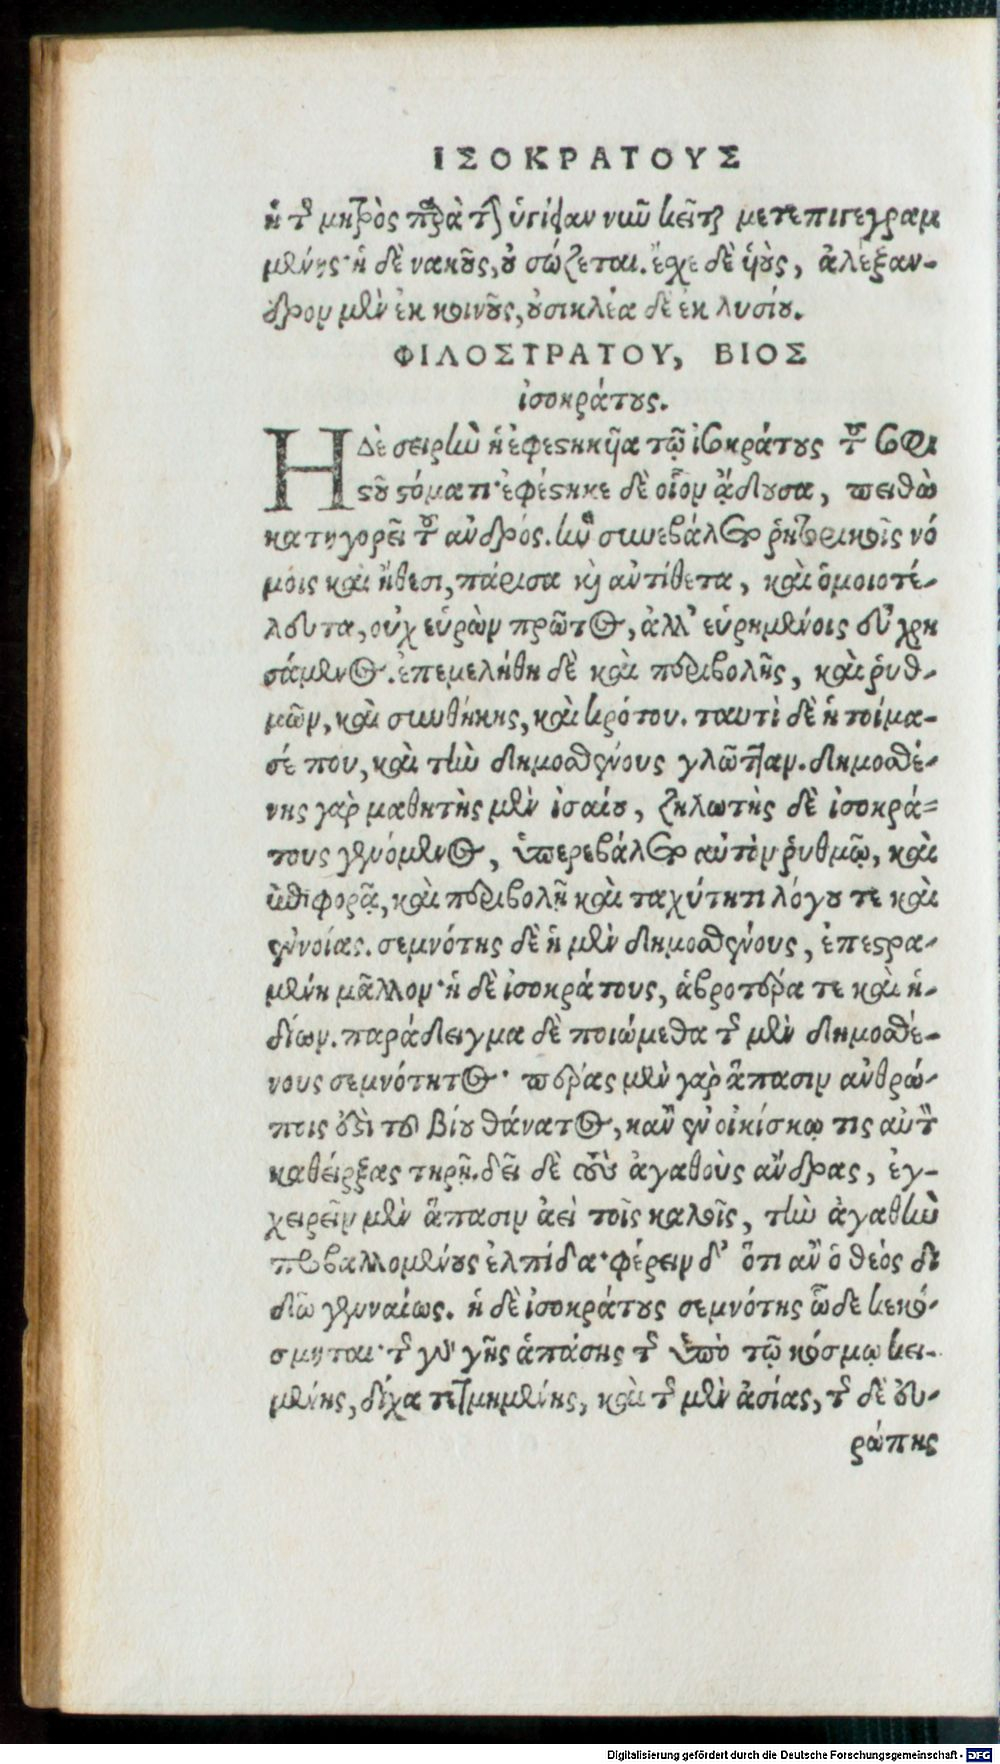 ΙΣΟΚΡΑΤΟΥΣ
ἡ τῆς μητρὸς παρὰ τὴν ὑγίειαν νῦν κεῖται μετεπιγεγραμ
μένης· ἡ δὲ νακοῦς, οὐ σώζεται. ἔχε δὲ ὑοὺς, ἀλέξαν-
δρον μὲν ἐκ κοινοῦς, οὐσικλέα δὲ ἐκ λυσίου.
ΦΙΛΟΣΤΡΑΤΟΥ, ΒΙΟΣ
ἰσοκράτους.
Η Δὲ σειρὴν ἡ ἐφεστηκῦα τῷ ἰσοκράτους τοῦ σοφι
στοῦ στόματι· ἐφέστηκε δὲ οἷον ᾄδουσα, πειθὼ
κατηγορεῖ τοῦ ἀνδρός. ἣν συνεβάλετο ῥητορικοῖς νό
μοις καὶ ἤθεσι, πάρισα καὶ ἀντίθετα, καὶ ὁμοιοτέ-
λευτα, οὐχ εὑρὼν πρῶτος, ἀλλ' εὑρημένοις εὖ χρη
σάμενος. ἐπεμελήθη δὲ καὶ περιβολῆς, καὶ ῥυθ-
μῶν, καὶ συνθήκης, καὶ κρότου. ταυτὶ δὲ ἡτοίμα-
σέ που, καὶ τὴν δημοσθένους γλῶτταν. δημοσθέ-
νης γὰρ μαθητὴς μὲν ἰσαίου, ζηλωτὴς δὲ ἰσοκρά=
τους γενόμενος, ὑπερεβάλετο αὐτὸν ῥυθμῷ, καὶ
ἐπιφορᾷ, καὶ περιβολῇ καὶ ταχύτητι λόγου τε καὶ
ἐννοίας. σεμνότης δὲ ἡ μὲν δημοσθένους, ἐπεστρα-
μένη μᾶλλον· ἡ δὲ ἰσοκράτους, ἁβροτέρα τε καὶ ἡ-
δίων. παράδειγμα δὲ ποιώμεθα τῆς μὲν δημοσθέ-
νους σεμνότητος· πέρας μὲν γὰρ ἅπασιν ἀνθρώ-
ποις ἐστὶ τοῦ βίου θάνατος, κἂν ἐν οἰκίσκῳ τις αὑτὸν
καθείρξας τηρῇ. δεῖ δὲ τοὺς ἀγαθοὺς ἄνδρας, ἐγ-
χειρεῖν μὲν ἅπασιν ἀεὶ τοῖς καλοῖς, τὴν ἀγαθὴν
προβαλλομένους ἐλπίδα· φέρειν δ' ὅτι ἂν ὁ θεὸς δι
δῷ γενναίως. ἡ δὲ ἰσοκράτους σεμνότης ὧδε κεκό-
σμηται· τῆς γὰρ γῆς ἁπάσης τῆς ὑπὸ τῷ κόσμῳ κει-
μένης, δίχα τετμημένης, καὶ τῆς μὲν ἀσίας, τῆς δὲ εὐ-
ρώπης
Digitalisierung gefördert durch die Deutsche Forschungsgemeinschaft - DFG